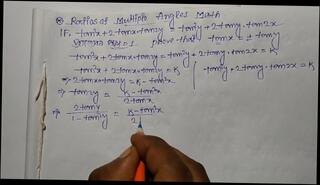 ⊗ Ratios of Multiple Angles Math
If, tan²x + 2tanx·tan2y = tan²y + 2tany·tan2x
prove that tanx = ± tany
tan²x + 2tanx·tan2y = tan²y + 2tany·tan2x = K
tan²x + 2tanx·tan2y = K | tan²y + 2tany·tan2x = K
⇒ 2tanx·tan2y = K - tan²x
⇒ tan2y = K - tan²x / 2tanx
⇒ 2tany / 1 - tan²y = K - tan²x / 2